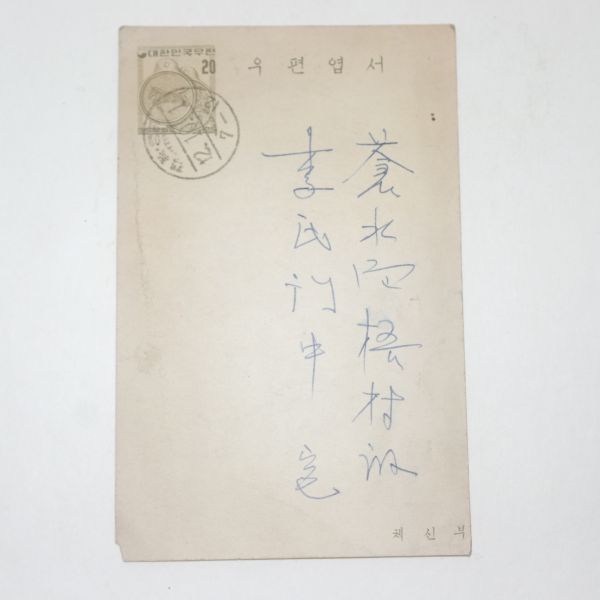 대한민국우편
20
우편엽서
蒼水面梧村
李氏門中宅
체신부